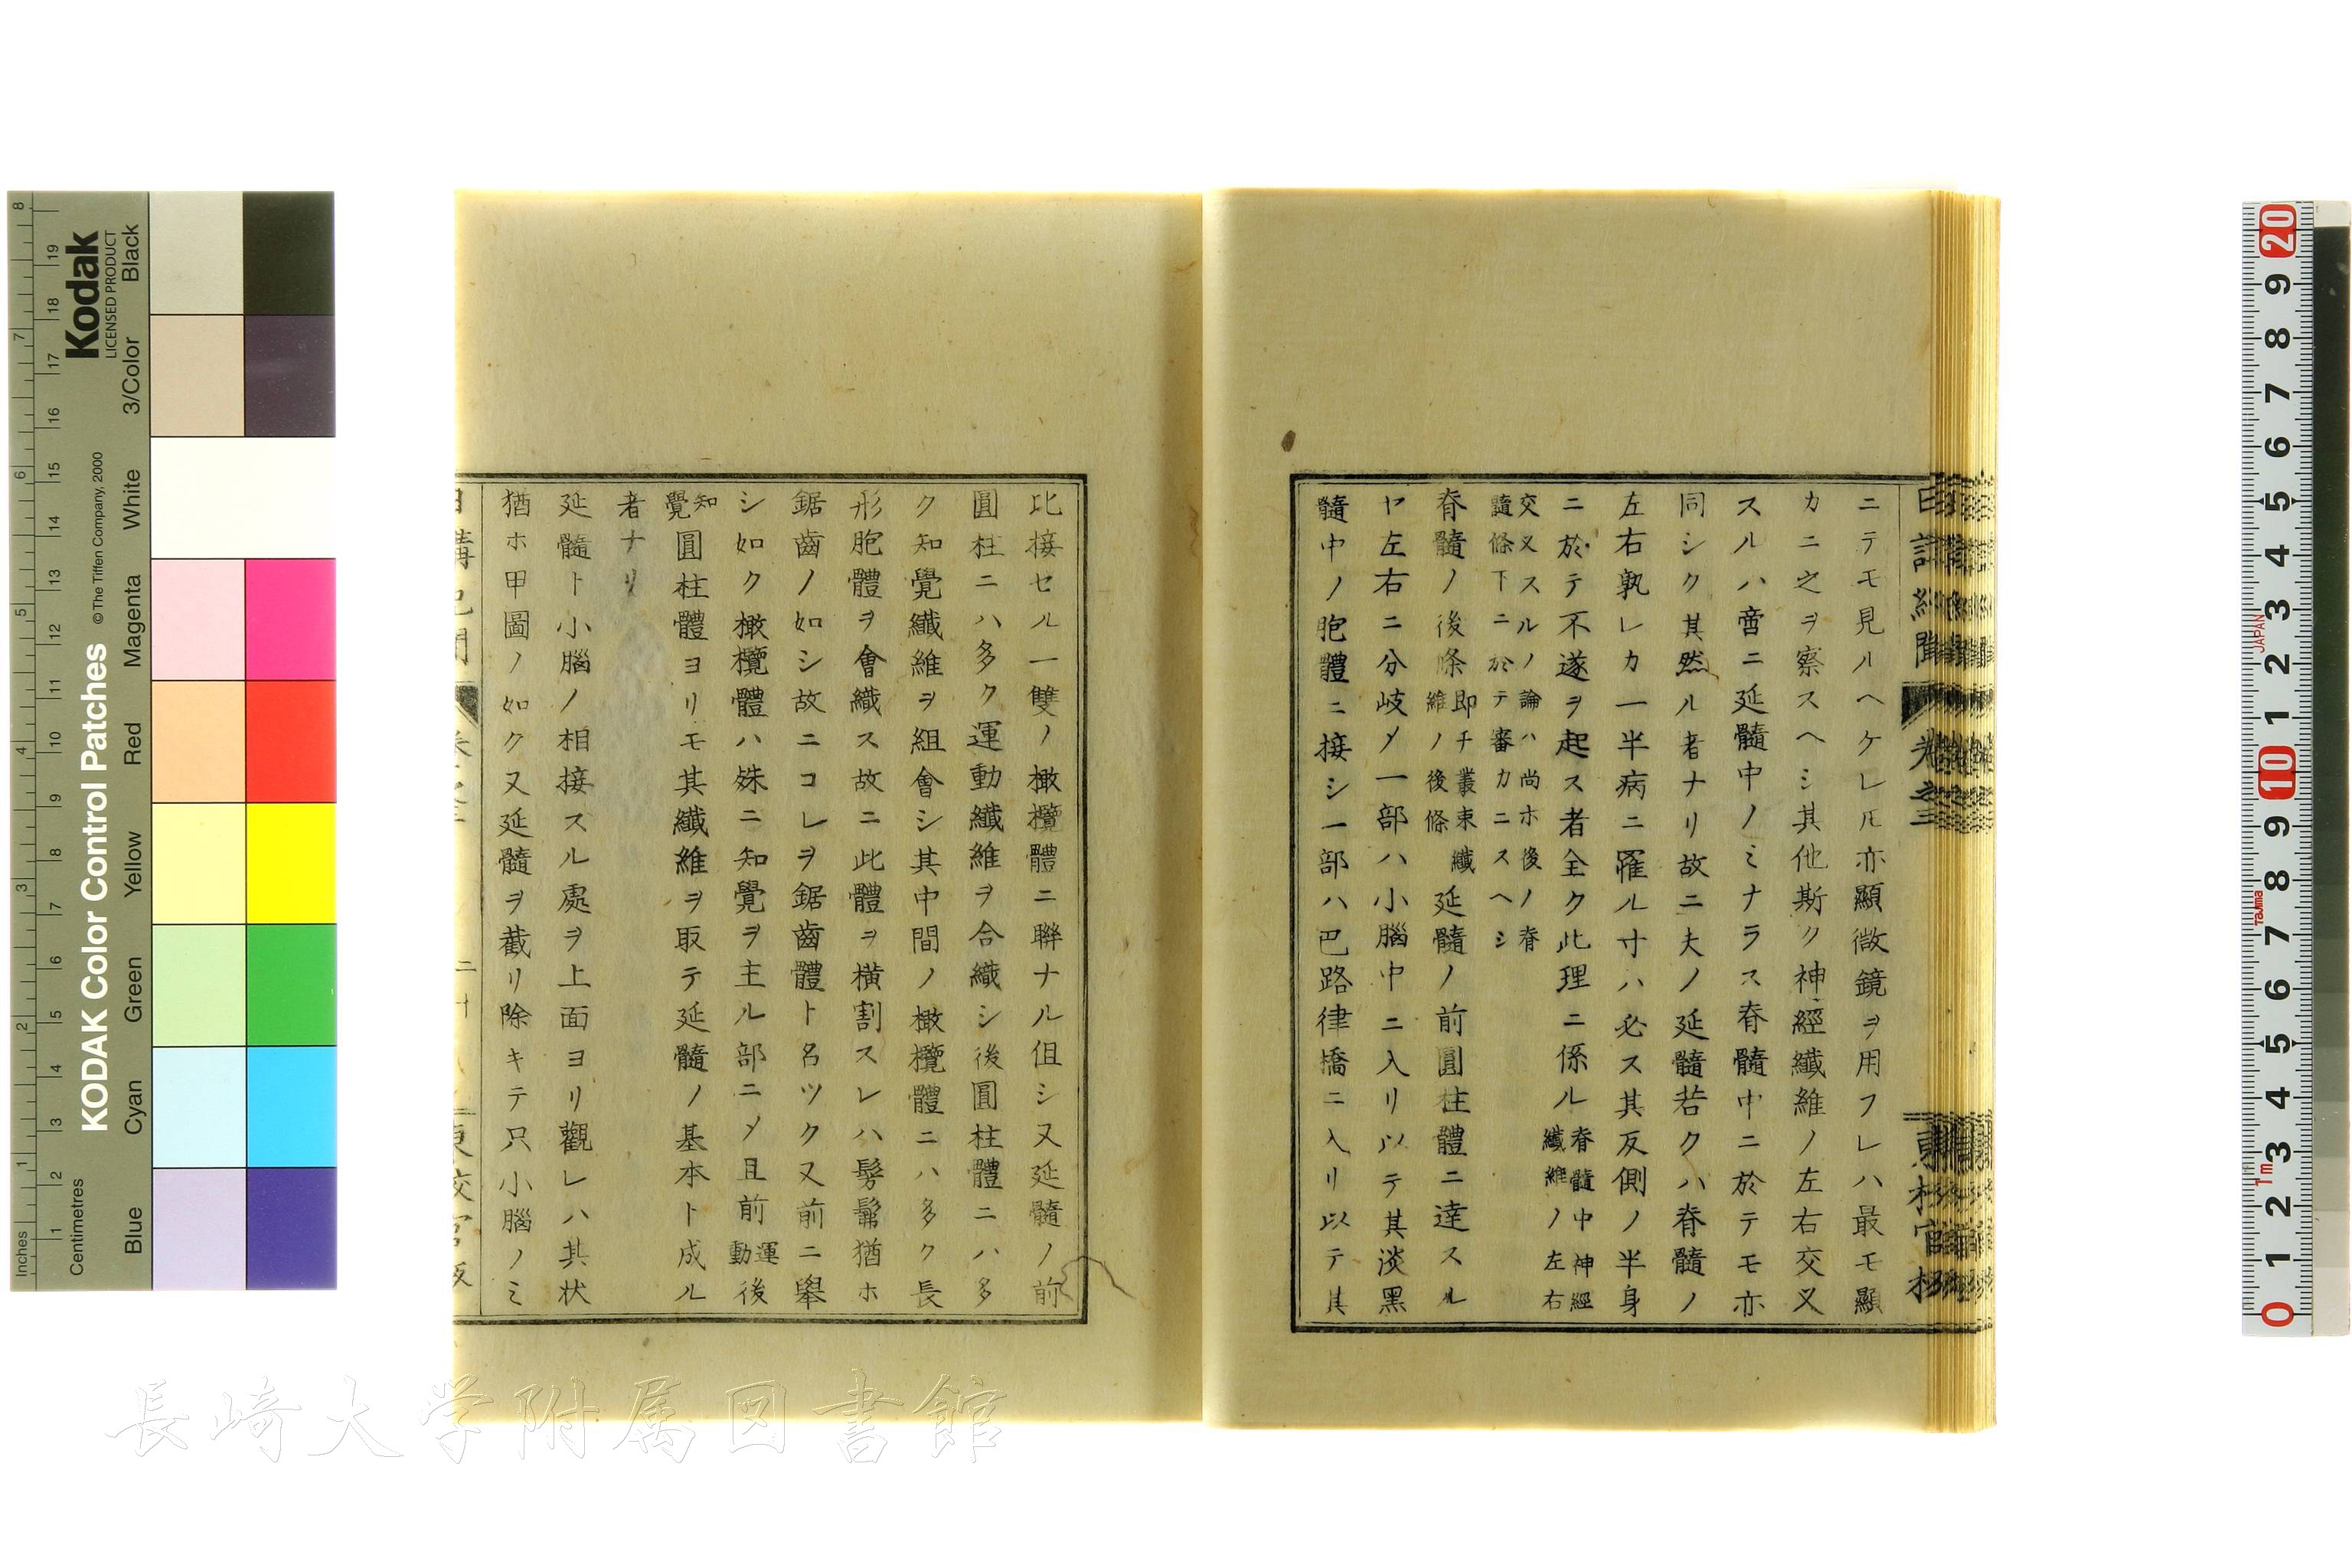 ニテモ見ルヘケレ𪜈亦顯微鏡ヲ用フレハ最モ顯
カニ之ヲ察スヘシ其他斯ク神經纖維ノ左右交叉
スルハ啻ニ延髓中ノミナラス脊髓中ニ於テモ亦
同シク其然ル者ナリ故ニ夫ノ延髓若クハ脊髓ノ
左右孰レカ一半病ニ罹ル寸ハ必ス其反側ノ半身
ニ於テ不遂ヲ起ス者全ク此理ニ係ル脊髓中神經
纖維ノ左右
交叉スルノ論ハ尚ホ後ノ脊
髓條下ニ於テ審カニスヘシ
脊髓ノ後條即チ叢束纖
維ノ後條延髓ノ前圓柱體ニ達スル
ヤ左右ニ分岐メ一部ハ小腦中ニ入リ以テ其淡黑
髓中ノ胞體ニ接シ一部ハ巴路律橋ニ入リ以テ其
比接セル一雙ノ橄欖體ニ聯ナル但シ又延髓ノ前
圓柱ニハ多ク運動纖維ヲ合織シ後圓柱體ニハ多
ク知覺纖維ヲ組會シ其中間ノ橄欖體ニハ多ク長
形胞體ヲ會織ス故ニ此體ヲ橫割スレハ髣髴猶ホ
鋸齒ノ如シ故ニコレヲ鋸齒體ト名ツク又前ニ擧
シ如ク橄欖體ハ殊ニ知覺ヲ主ル部ニメ且前運
動後
知
覺圓柱體ヨリモ其纖維ヲ取テ延髓ノ基本ト成ル
者ナリ
延髓ト小腦ノ相接スル處ヲ上面ヨリ觀レハ其状
猶ホ甲圖ノ如ク又延髓ヲ截リ除キテ只小腦ノミ
長崎大学附属図書館
Kodak
LICENSED PRODUCT
KODAK Color Control Patches
© The Tiffen Company, 2000
Inches
Centimetres
Blue
Cyan
Green
Yellow
Red
Magenta
White
3/Color
Black
JAPAN
Tajima
1m